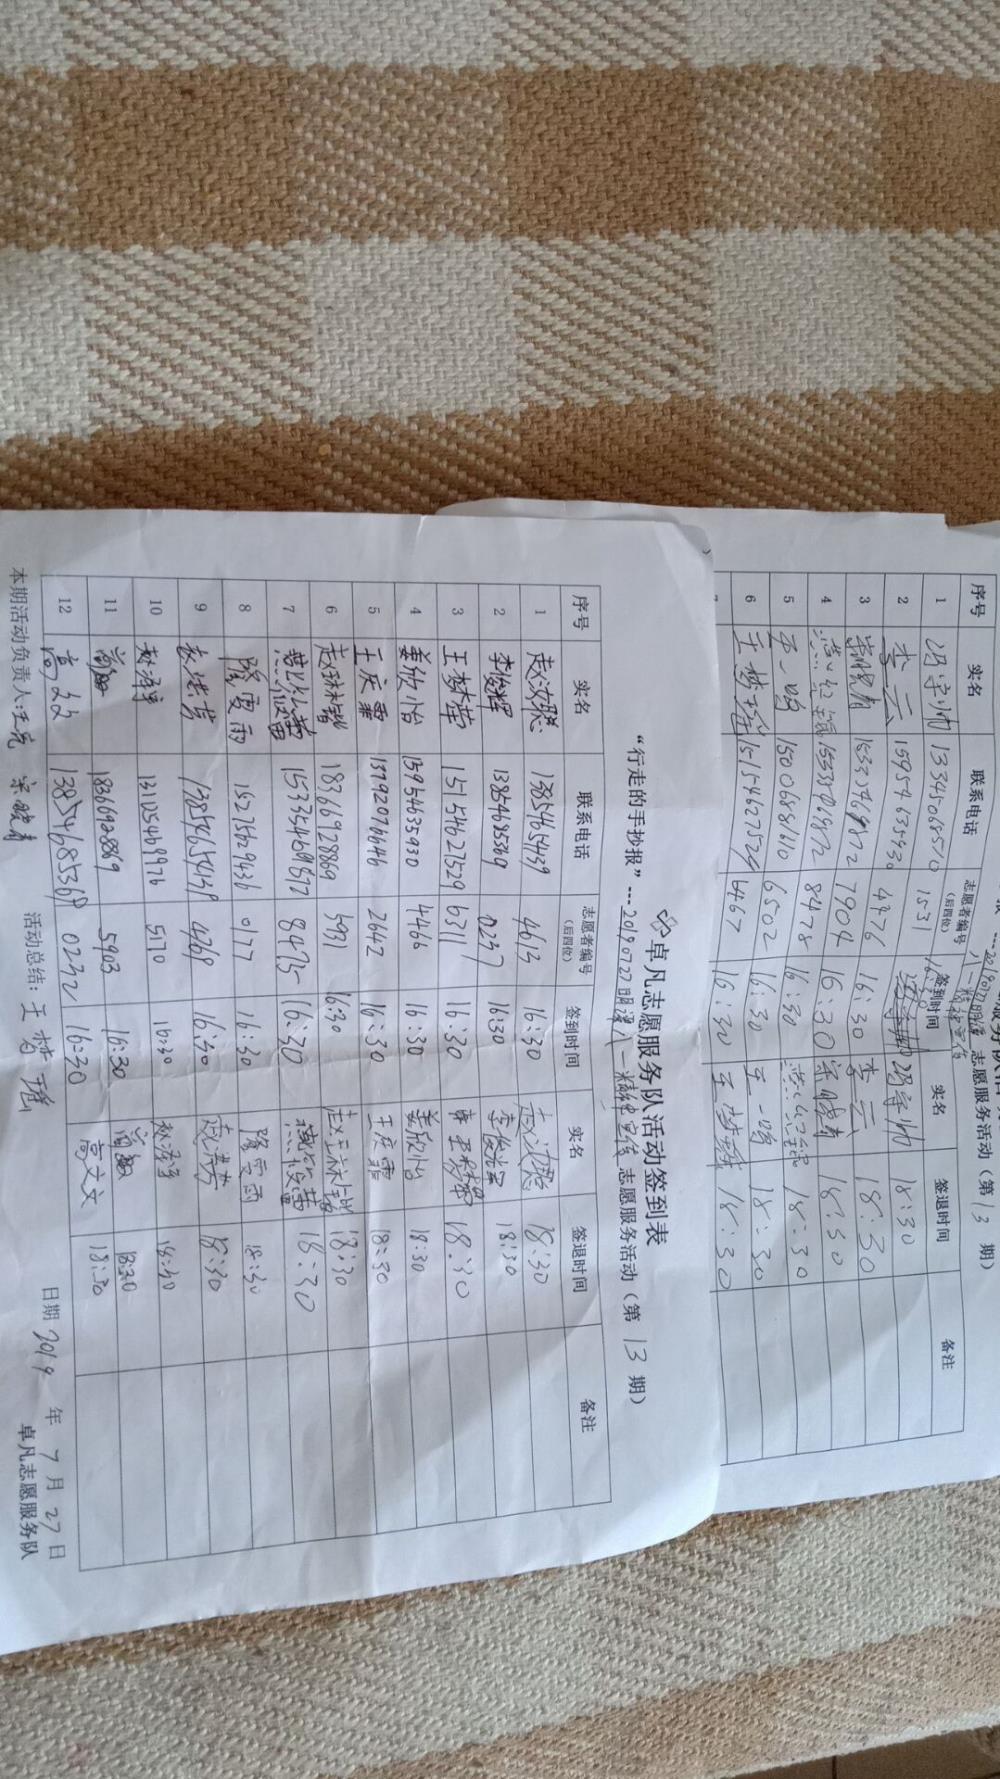 卓凡志愿服务队活动签到表
“行走的手抄报”---20190727明潭八一精神宣传 志愿服务活动（第 13 期）
序号 实名 联系电话 志愿者编号（后四位） 签到时间 实名 签退时间 备注
1 13854654439 4613 16:30 18:30
2 李俊辉 13854685369 0237 16:30 18:30
3 王梦莲 15154627529 6311 16:30 18:30
4 姜欣怡 15954635930 4446 16:30 姜欣怡 18:30
5 王庆霏 13792076646 2647 16:30 王庆霏 18:30
6 18366928869 5931 16:30 18:30
7 燕苡蕾 15335469872 8475 16:30 燕苡蕾 18:30
8 隆雯雨 15275629436 0177 16:30 隆雯雨 18:30
9 13854654439 4268 16:30 18:30
10 13105469976 5170 16:30 18:30
11 18366928869 5903 16:30 18:30
12 高文文 13854685368 0232 16:30 高文文 18:30
本期活动负责人:王亮 宋晓青 活动总结: 王梦瑶 日期 2019 年 7 月 27 日
卓凡志愿服务队
志愿服务活动（第 13 期）
序号 实名 联系电话 志愿者编号（后四位） 签到时间 实名 签退时间 备注
1 冯宇帅 13345068510 1531 冯宇帅 18:30
2 李云 15954635930 4476 16:30 李云 18:30
3 宋晓青 15335469872 7904 16:30 宋晓青 18:30
4 15335469872 8478 16:30 18:30
5 王一鸣 15006881610 6502 16:30 王一鸣 18:30
6 王梦瑶 15154627529 467 16:30 王梦瑶 18:30